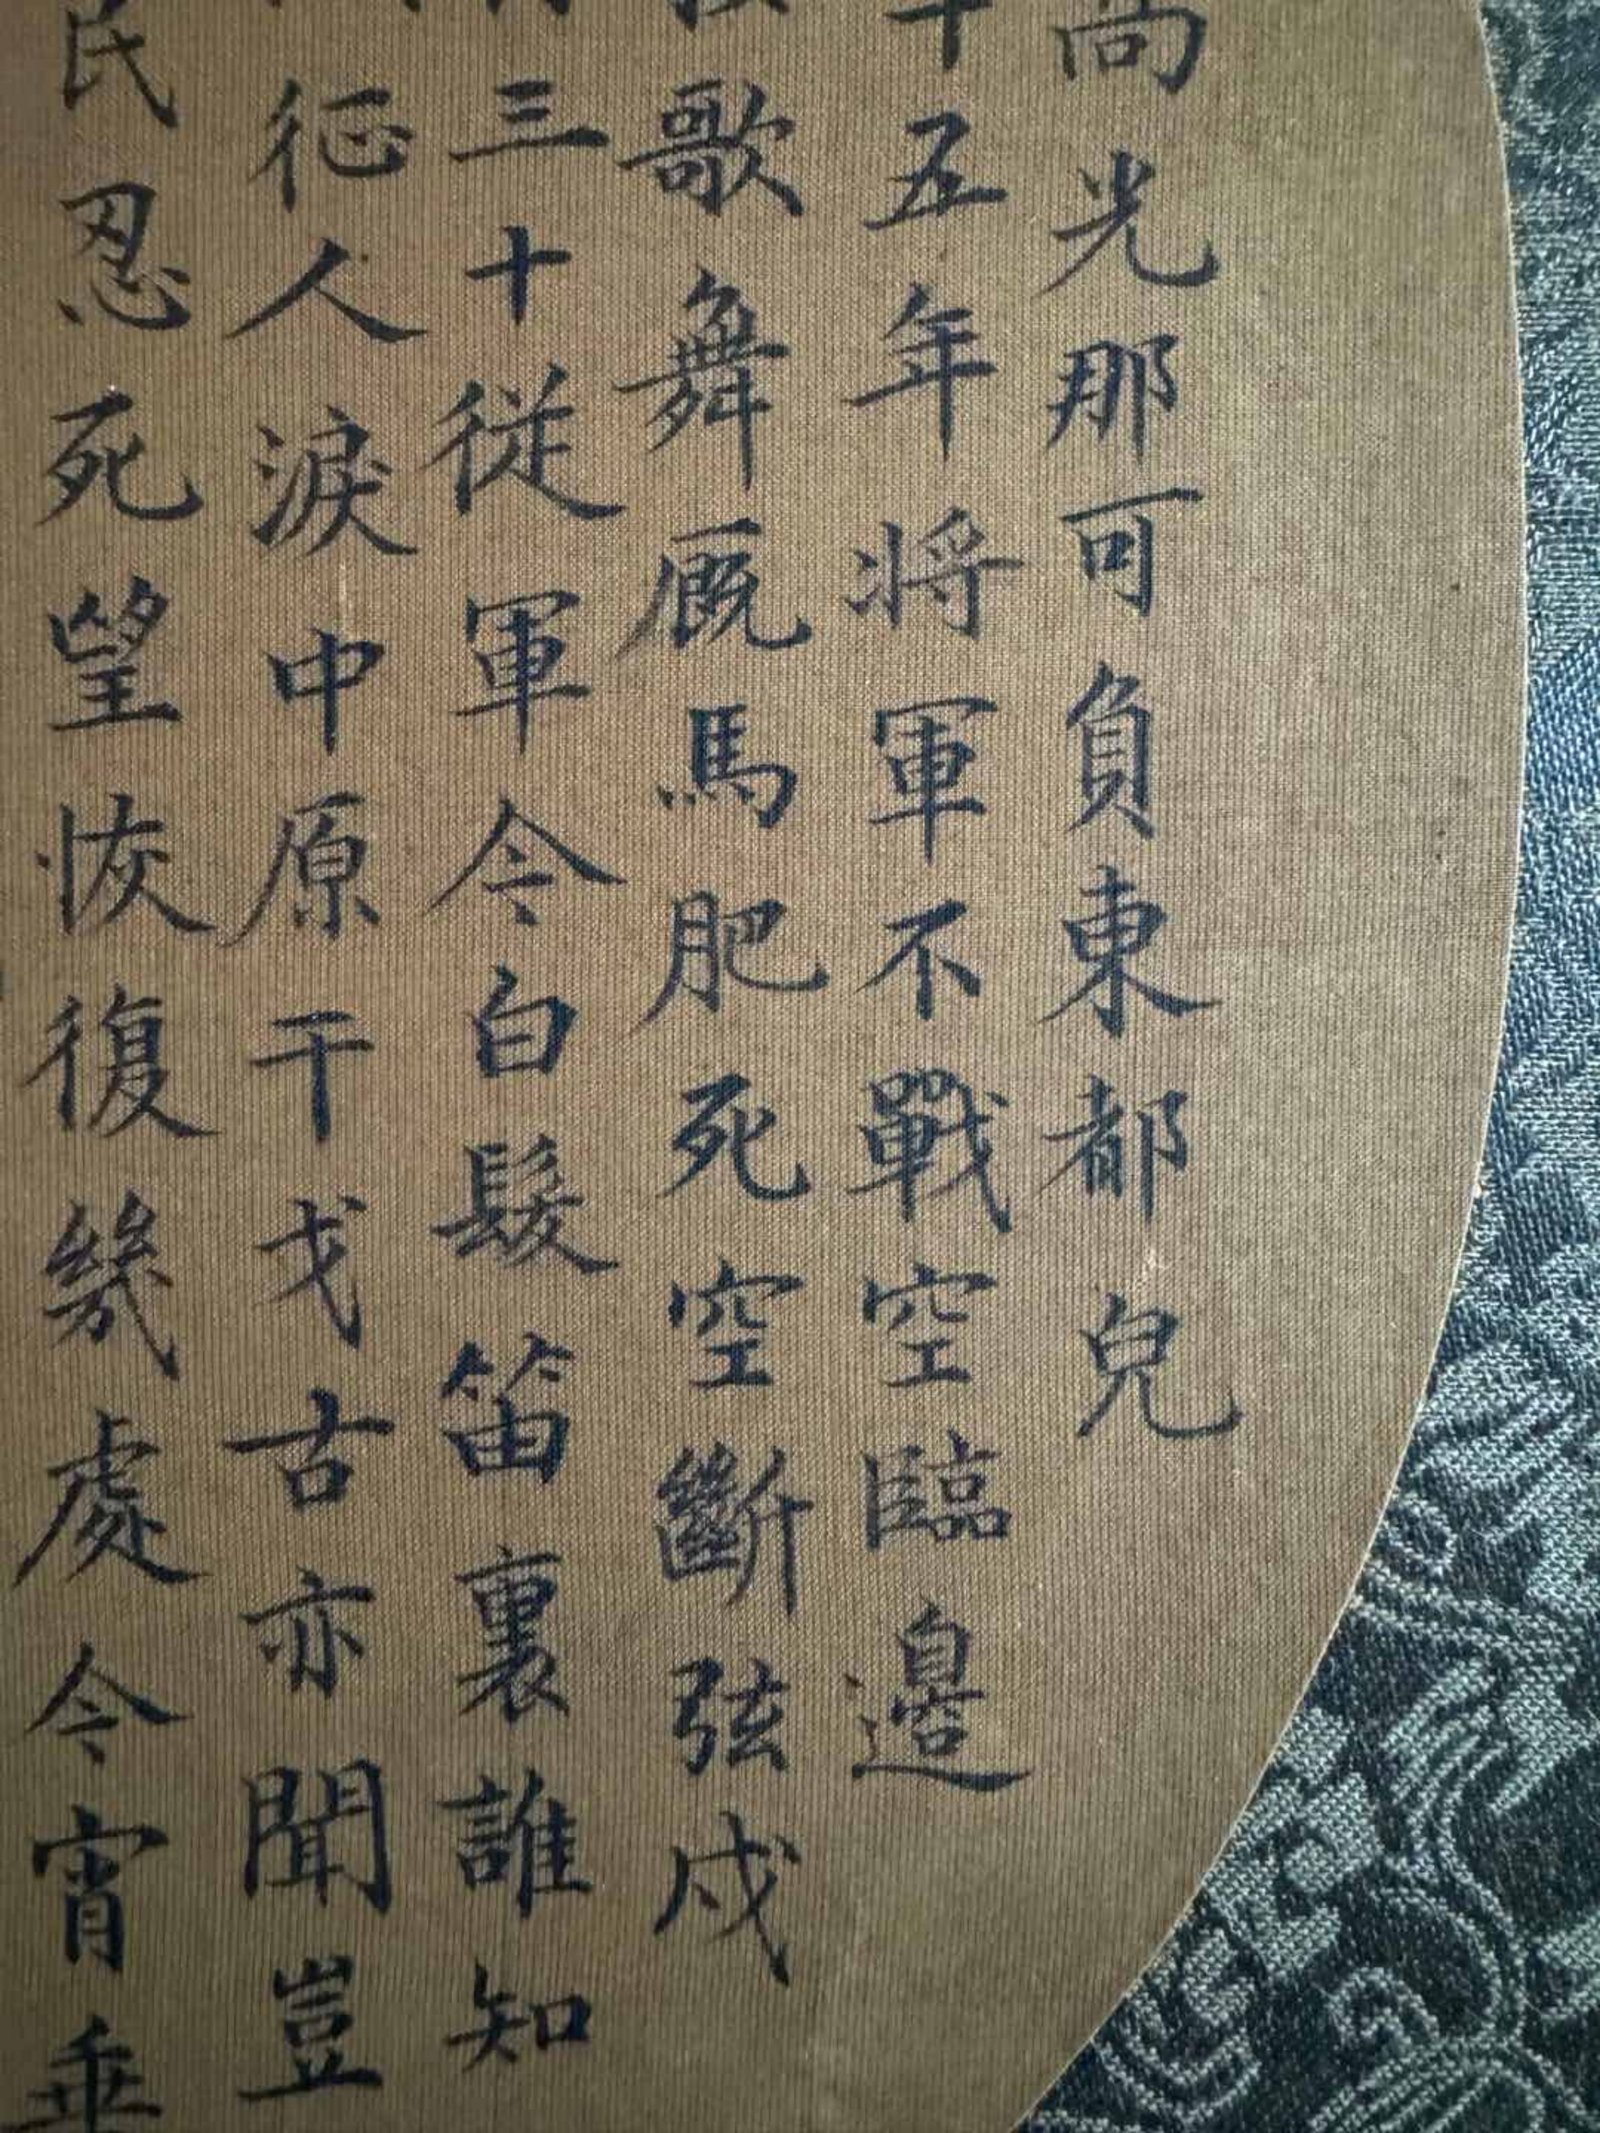 尚光那可負東都兒
十五年將軍不戰空臨邊
歌舞厩馬肥死空斷弦戍
三十從軍今白髮笛裏誰知
征人淚中原干戈古亦聞豈
民忍死望恢復幾處今宵垂